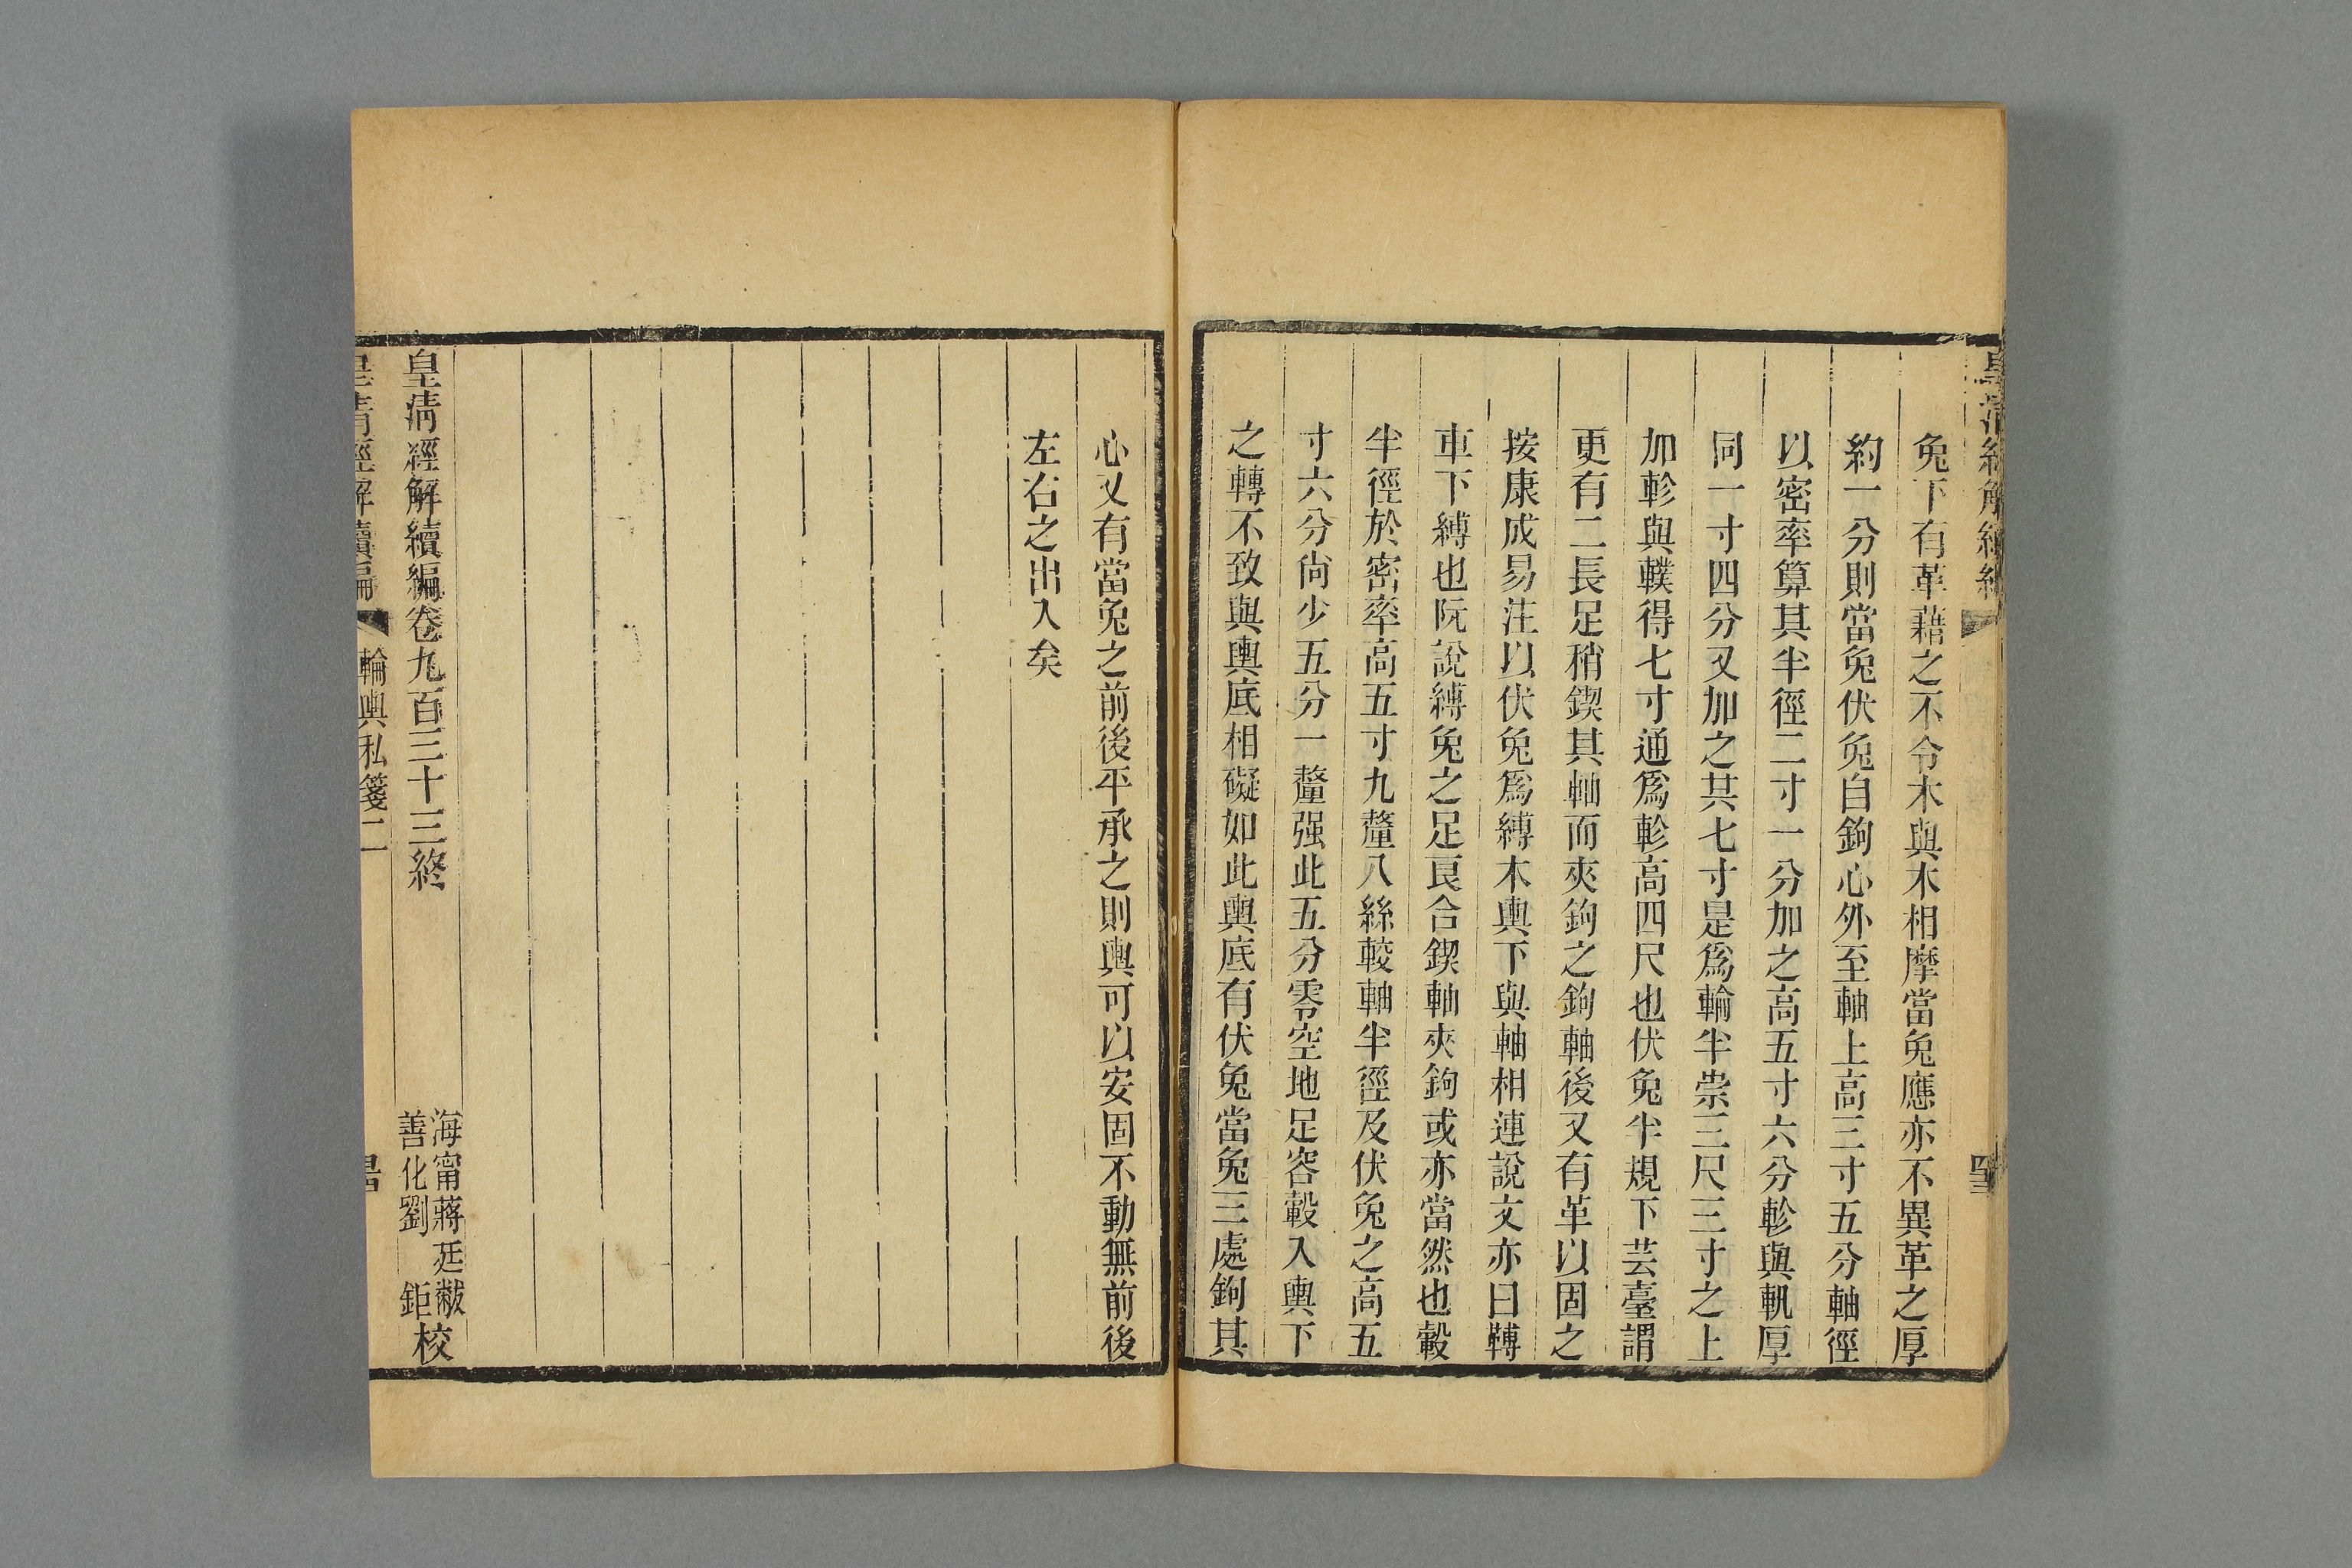 兔下有革藉之不令木與木相摩當兔應亦不異革之厚
約一分則當兔伏兔自鉤心外至軸上高三寸五分軸徑
以密率算其半徑二寸一分加之高五寸六分軫與軓厚
同一寸四分又加之共七寸是爲輪半崇三尺三寸之上
加軫與轐得七寸通爲軫高四尺也伏兔半規下芸臺謂
更有二長足稍鍥其軸而夾鉤之鉤軸後又有革以固之
按康成易注以伏兔爲縛木輿下與軸相連說文亦曰䡝
車下縛也阮說縛兔之足良合鍥軸夾鉤或亦當然也轂
半徑於密率高五寸九釐八絲較軸半徑及伏兔之高五
寸六分尙少五分一釐强此五分零空地足容轂入輿下
之轉不致與輿底相礙如此輿底有伏兔當兔三處鉤其
心又有當兔之前後平承之則輿可以安固不動無前後
左右之出入矣
皇清經解續編卷九百三十三終
海甯蔣廷黻
善化劉 鉅校
皇清經解續編 輪輿私箋二